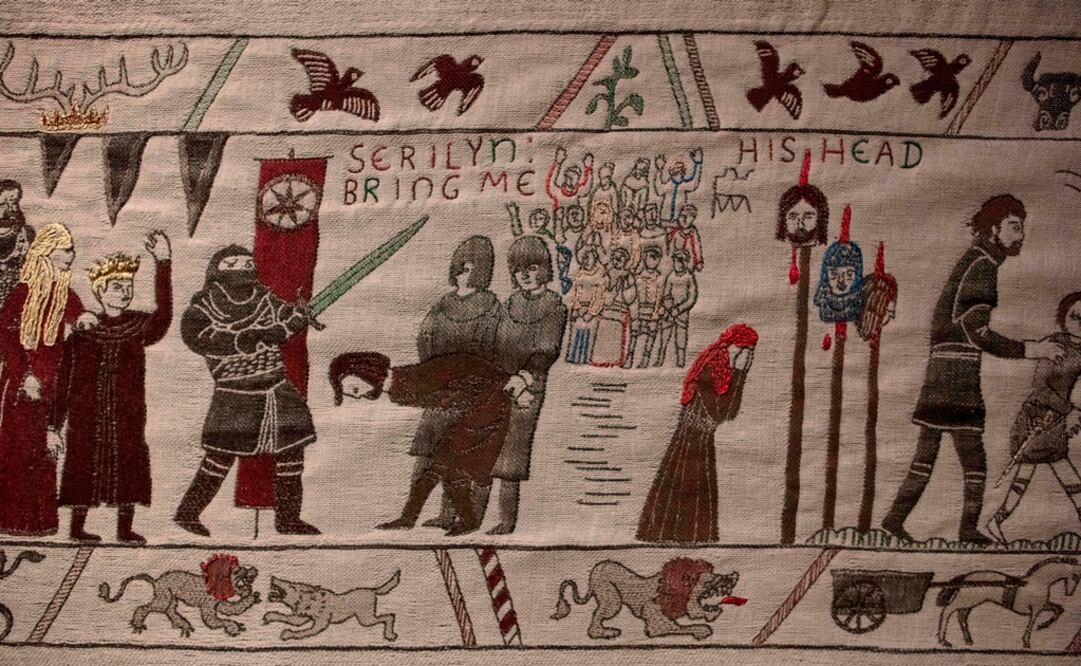 SERILYN: HIS HEAD
BRING ME